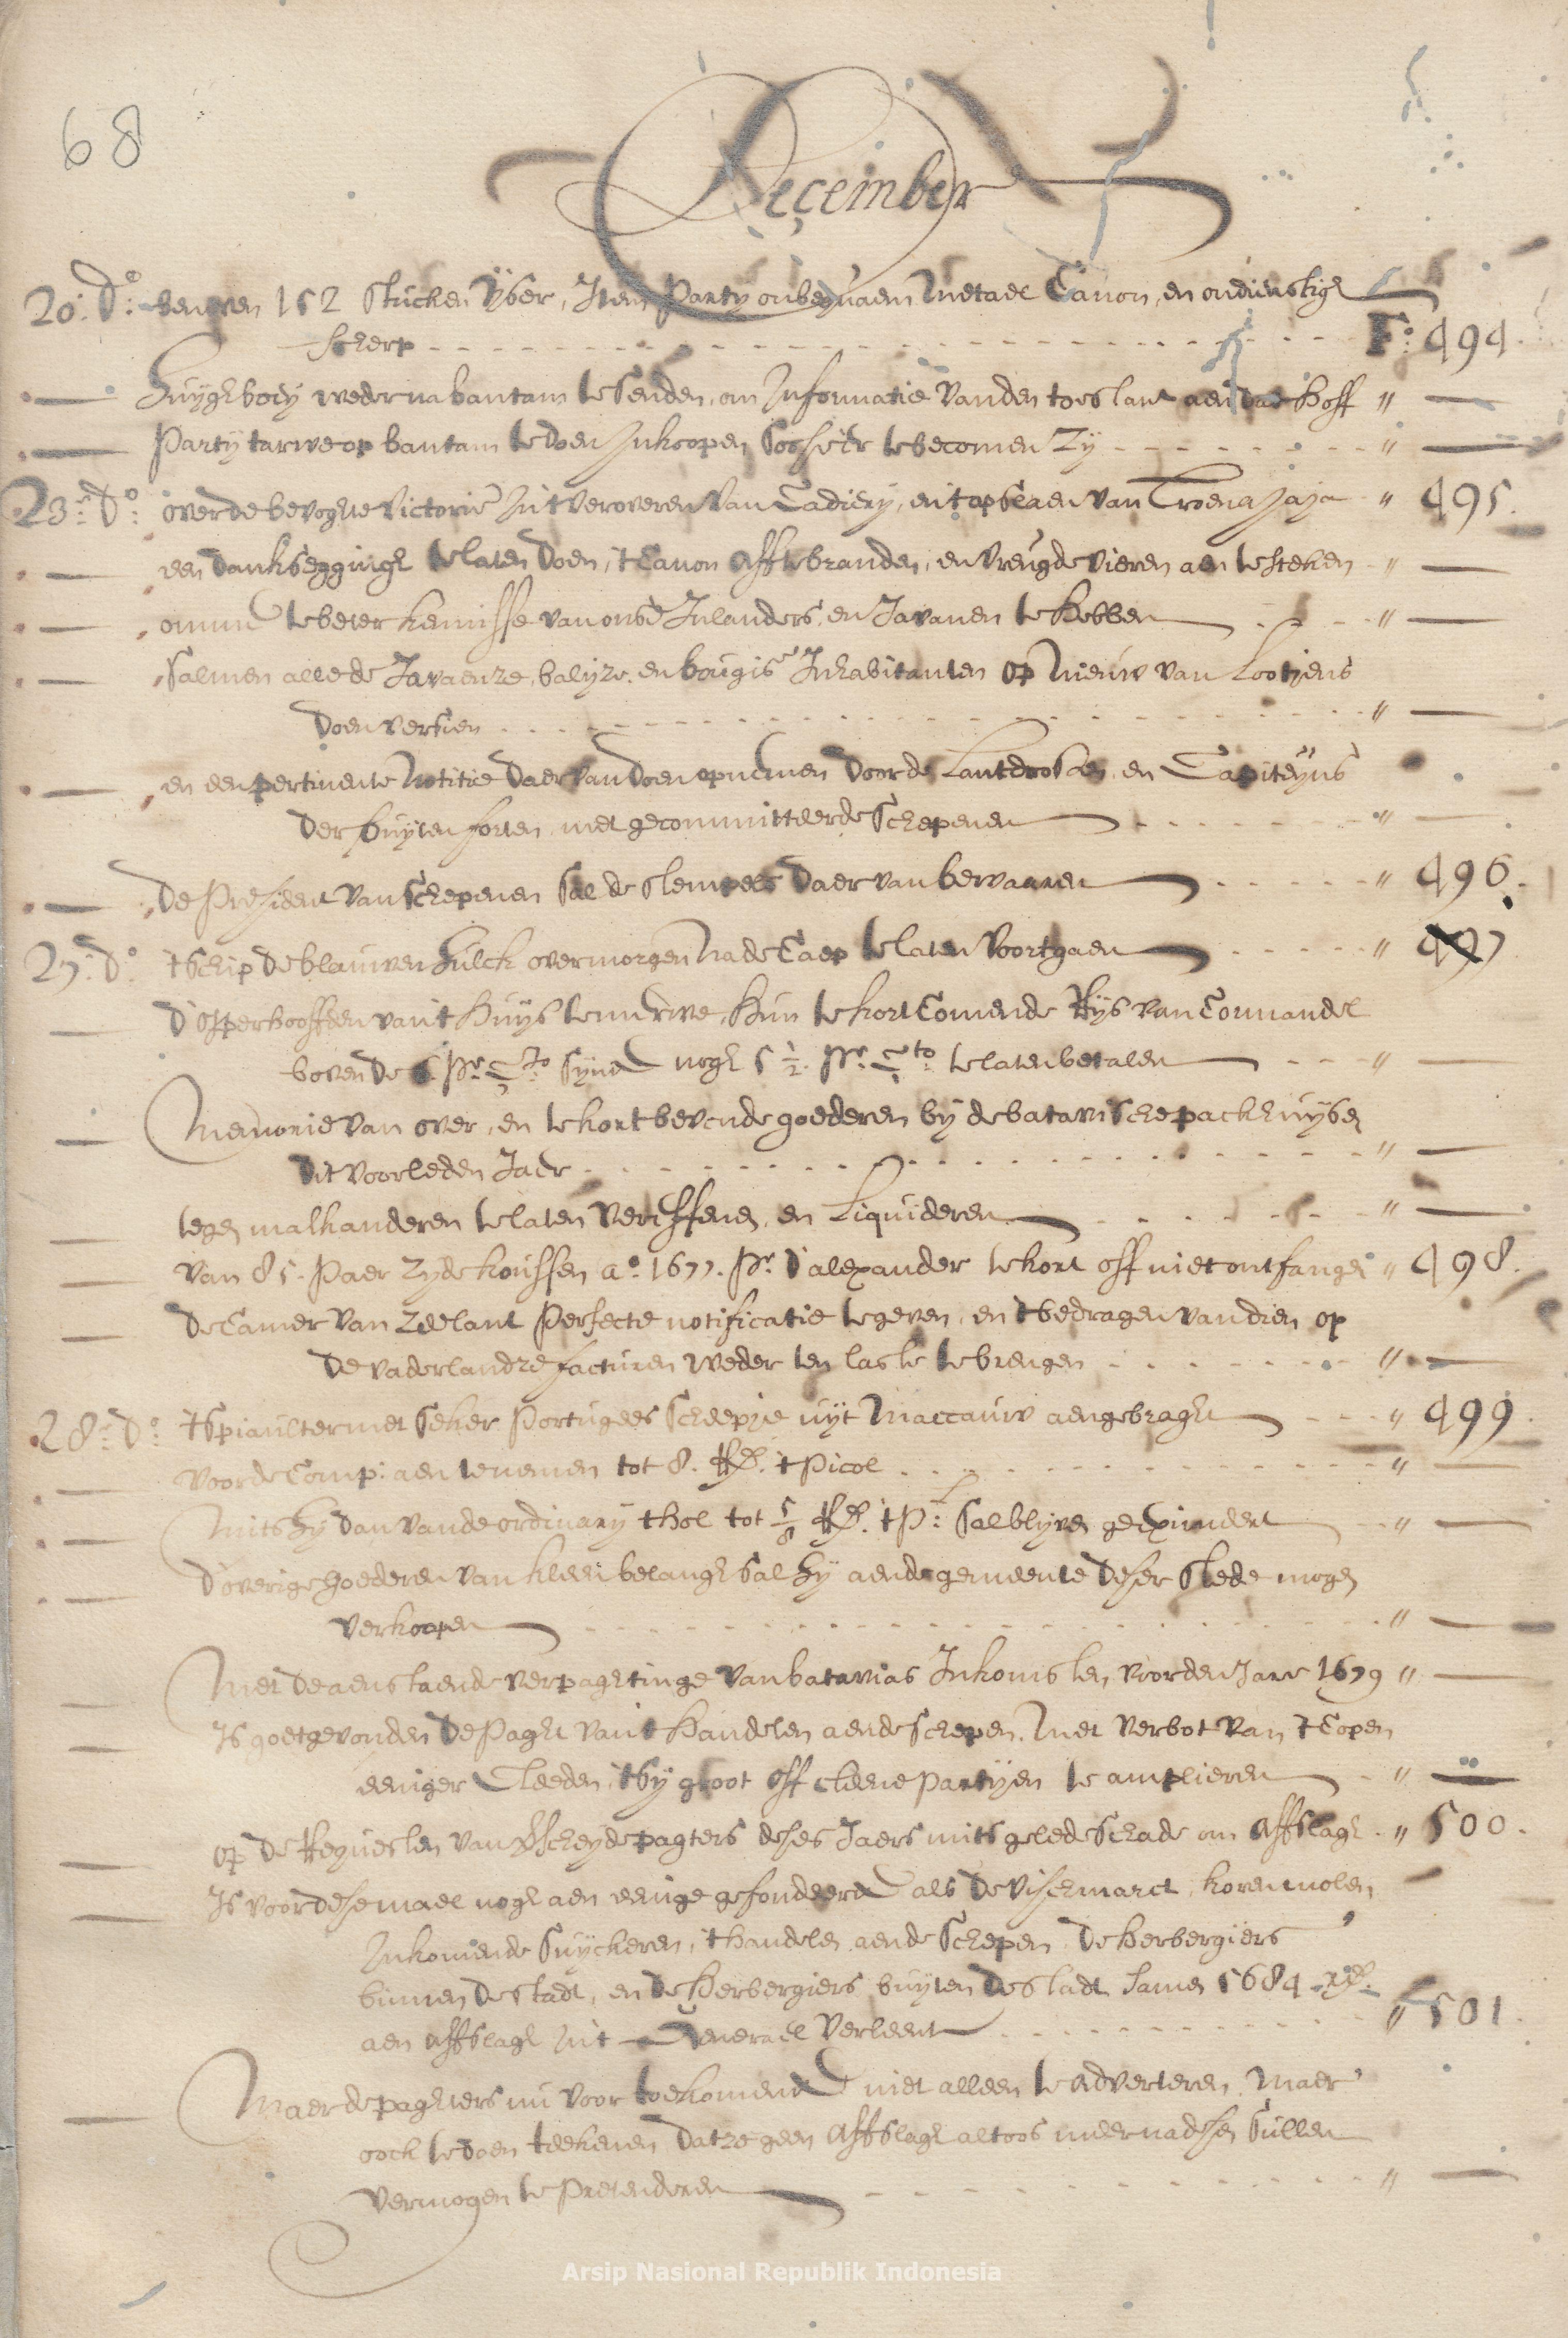 68
December
20. d.o beneven 152 stucken ÿser, Item Party onbequaem Metael Canon, en ondienstigh
scherp - - - F.o 494.
— Huÿgh boeÿ weder na bantam te senden, om Informatie van den toestant aen dat Hoff " —
— Partÿ tarwe op bantam te doen Inkoopen, soo se'er te becomen zÿ - - - " —
23.en d.o over de bevoghte victorie in 't veroveren van Cadierÿ, en 't opslaen van Troenajaja " 495.
— een danksegginge te laten doen, 't Canon aff te branden, en vreugde vieren aen te steken - " —
— omme te beter kennisse van onse Inlanders, en Javanen te hebben - - - " —
— salmen alle de Javaenze, balijze, en bougise Inhabitanten op nieuw van Lootjens
doen versien - - - " —
— en een pertinente Notitie daer van doen opnemen door de Lantdrosten en Capiteÿns
der buÿten forten, met gecommitteerde schepenen - - - " —
— De President van schepenen sal de stempels daer van bewaaren - - - " 496.
27.en d.o 't schip de blauwen Hulck overmorgen na de Caep te laten voortgaen - - - " 497
— d'opperhooffden van 't Huÿs te merwe, hun te kort comende Rÿs van Cormandel
boven de pr. C.to synde nogh 5 1/2 pr. C.to te laten betalen - - - " —
— Memorie van over, en te kort bevonde goederen bÿ de bataviSche packhuÿsen
dit voorleden Jaer - - - " —
— tegen malkanderen te laten vereffenen, en Liquideren - - - " —
— van 85. Paer zÿde koussen a.o 1677. pr. d'alexander te kort off niet ontfangen " 498.
— de Camer van Zeelant Perfecte notificatie te geven, en 't bedragen van dien op
de vaderlandze facturen weder ten laste te brengen - - - " —
28.en d.o 't spiaulter met seker Portugees scheepje uÿt Maccauw aengebraght - - - " 499.
— voor de Comp: aen te nemen tot 8. Rd. 't Picol - - - " —
— mits hÿ dan van de ordinarÿ thol tot 5/8 Rd. 't P:l sal blÿven geeximeert - " —
— d'overige goederen van kleen belangh sal hÿ aen de gemeente deser stede mogen
verkoopen - - - " —
— Met de aenstaende verpaghtinge van batavias Inkomsten, voor den Jare 1679 " —
— Is goetgevonden de Paght van 't Handelen aen de schepen, met verbot van 't Copen
eeniger Cleeden, 't sÿ groot off cleene partÿen te amplieren - - " —
— op de Requesten van verscheÿde pagters deses Jaers mits gelede schade om Affslagh. " 500.
— Is voor desemael nogh aen eenige gefondeerde als de vischmarct, korenmolen,
Inkomende suÿckeren, 't handelen aen de schepen, de Herbergiers
binnen de stadt, en de Herbergiers buÿten de stadt samen 5684 Rd.
aen affslagh int Generael verleent - - - " 501.
— Maer de paghters nu voor toekomende niet alleen te adverteren, Maer
oock te doen teekenen, dat ze geen Affslagh altoos meer na desen sullen
vermogen te pretenderen - - - " —
Arsip Nasional Republik Indonesia